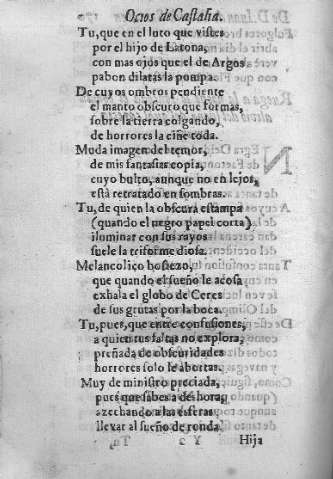 Ocios de Castalia.
Tu, que en el luto que vistes
por el hijo de Latona,
con mas ojos que el de Argos
pabon dilatas la pompa.
De cuyos ombros pendiente
el manto obscuro que formas,
sobre la tierra colgando,
de horrores la ciñe toda.
Muda imagen del temor,
de mis fantasias copia,
cuyo bulto, aunque no en lejos,
està retratado en sombras.
Tu, de quien la obscura estampa
(quando el negro papel corta)
iluminar con sus rayos
suele la triforme diosa.
Melancolico bostezo,
que quando el sueño le acosa
exhala el globo de Ceres
de sus grutas por la boca.
Tu, pues, que entre confusiones,
a quien tus faltas no explora,
preñada de obscuridades
horrores solo le abortas.
Muy de ministro preciada,
pues que sabes a deshora,
azechando a las esferas
llevar al sueño de ronda.
Hija